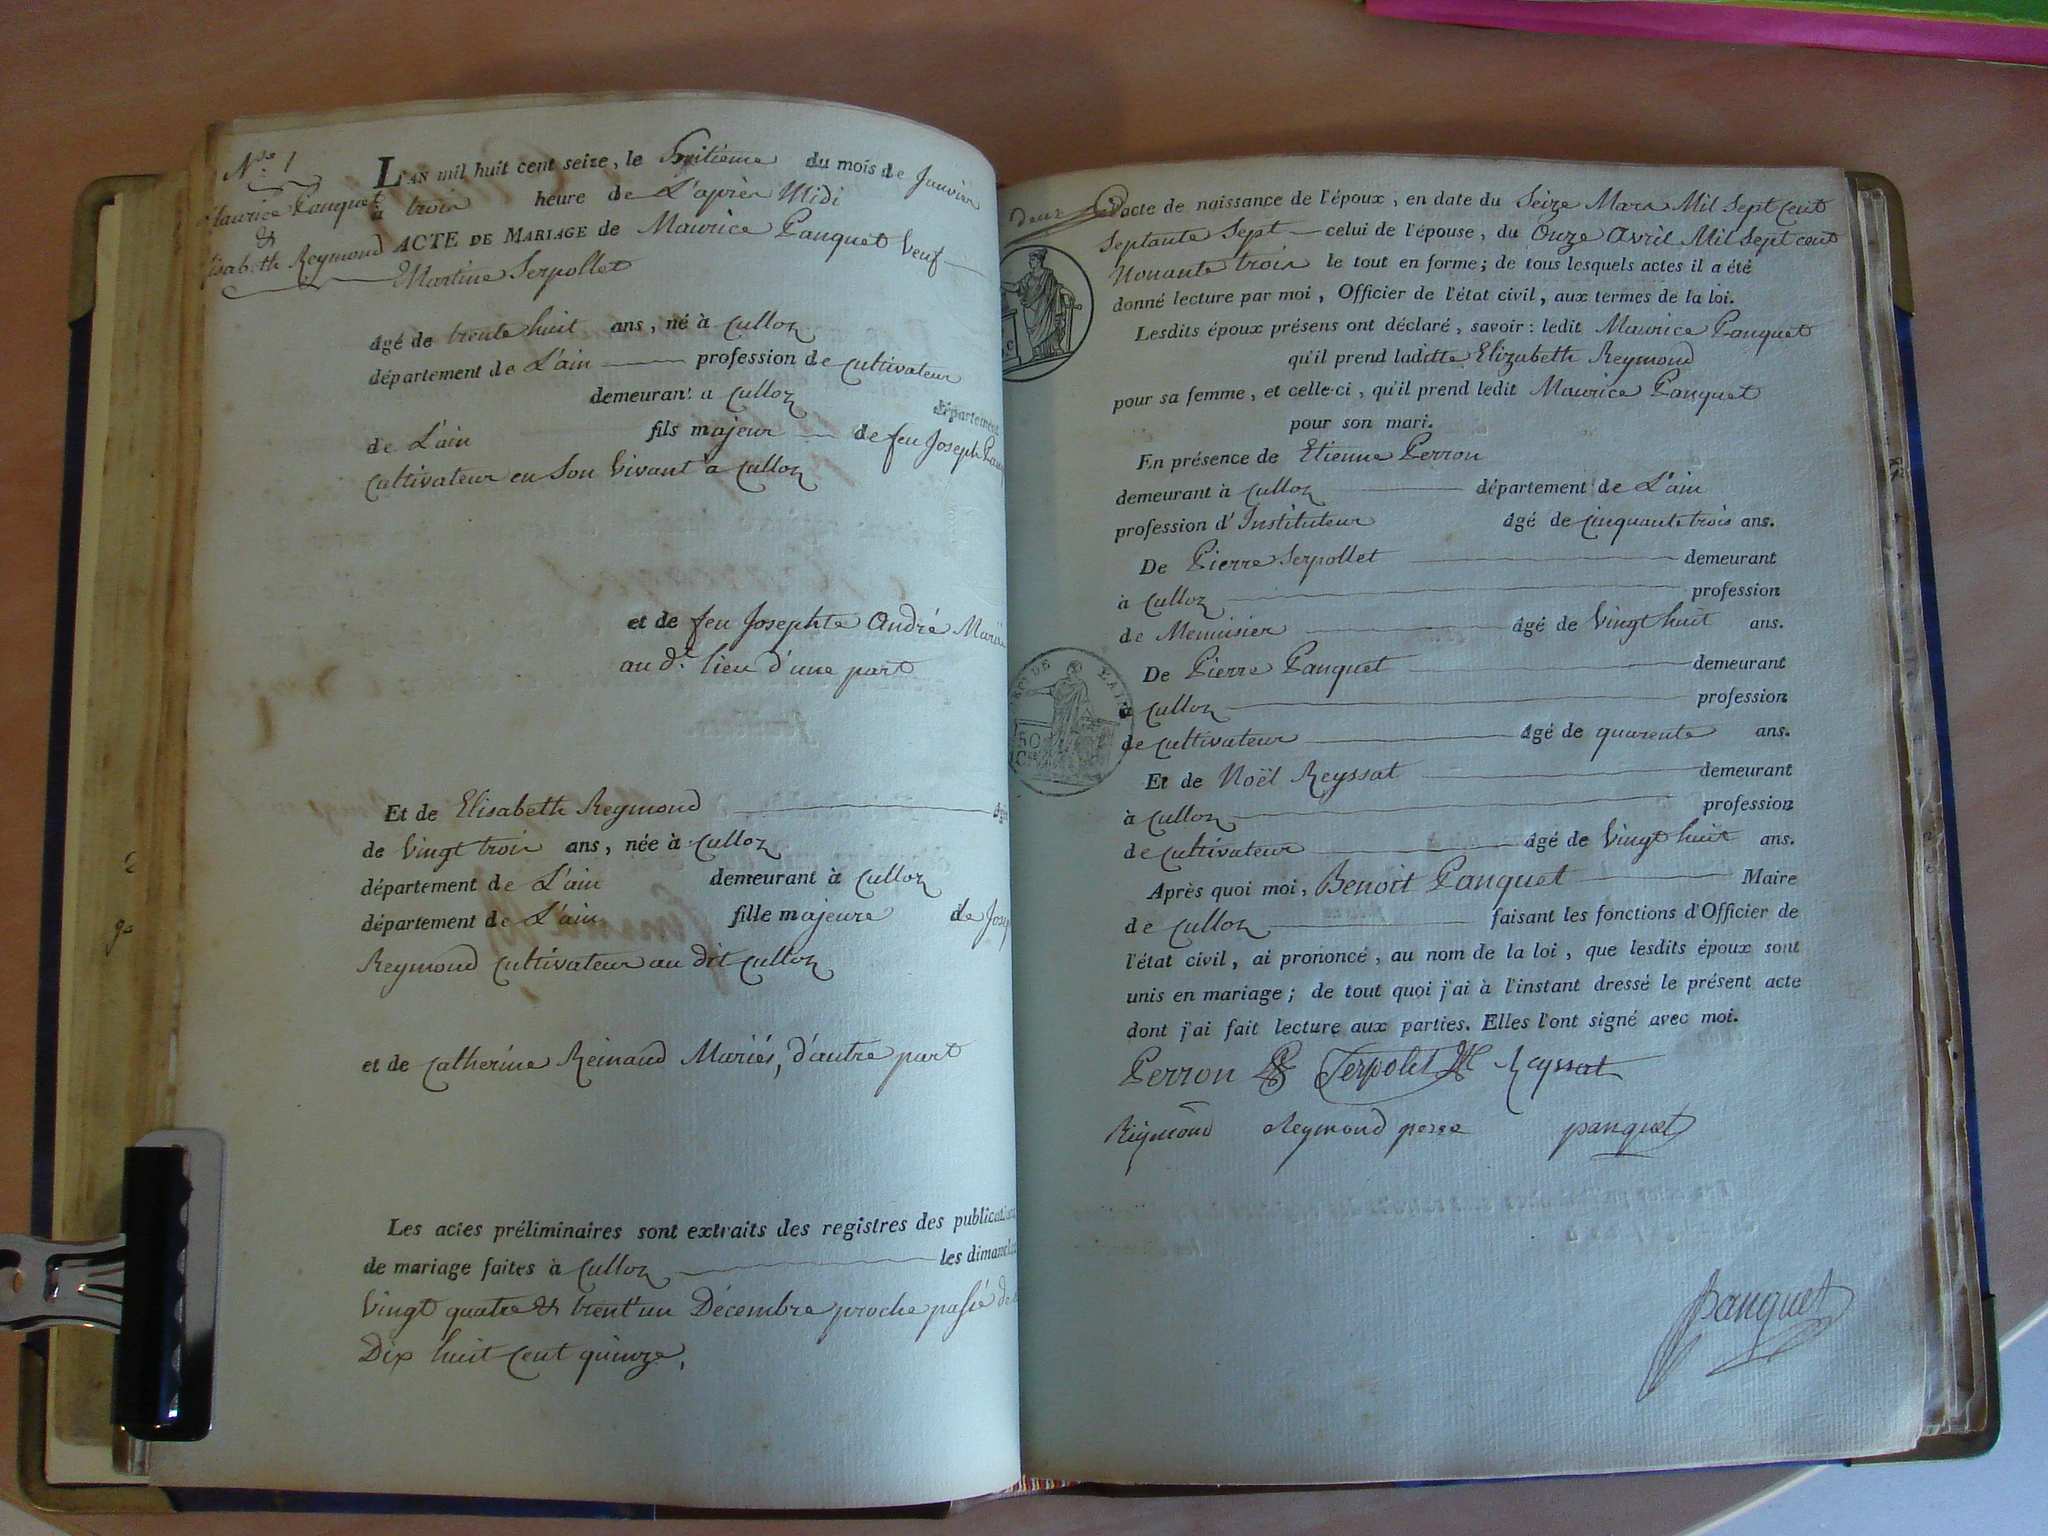 N.° 1
Maurice Panquet
&
Elisabeth Reymond
L'AN mil huit cent seize, le huitième du mois de Janvier
à trois heure de L'après Midi
ACTE DE MARIAGE de Maurice Panquet Veuf
Martine Serpollet
âgé de trente huit ans, né à Culloz
département de L'ain profession de Cultivateur
demeurant a Culloz département
de L'ain fils majeur de feu Joseph Pan
Cultivateur en Son Vivant a Culloz
et de feu Josephte André Marié
au d.t lieu d'une part
Et de Elisabeth Reymond âgée
de Vingt trois ans, née à Culloz
département de L'ain demeurant à Culloz
département de L'ain fille majeure de Josep
Reymond Cultivateur au dit Culloz
et de Catherine Reinaud Mariés, d'autre part
Les actes préliminaires sont extraits des registres des publications
de mariage faites à Culloz les dimanches
Vingt quatre & trent'un Décembre proche passé de
Dix huit Cent quinze,
Deux acte de naissance de l'époux, en date du Seize Mars Mil Sept Cent
Septante Sept celui de l'épouse, du Onze Avril Mil Sept cent
Nonante trois le tout en forme; de tous lesquels actes il a été
donné lecture par moi, Officier de l'état civil, aux termes de la loi.
Lesdits époux présens ont déclaré, savoir: ledit Maurice Panquet
qu'il prend laditte Elizabeth Reymond
pour sa femme, et celle-ci, qu'il prend ledit Maurice Panquet
pour son mari.
En présence de Etienne Perron
demeurant à Culloz département de L'ain
profession d'Instituteur âgé de Cinquante trois ans.
De Pierre Serpollet demeurant
à Culloz profession
de Menuisier âgé de Vingt huit ans.
De Pierre Panquet demeurant
à Culloz profession
de Cultivateur âgé de quarente ans.
Et de Noël Reyssat demeurant
à Culloz profession
de Cultivateur âgé de Vingt huit ans.
Après quoi moi, Benoit Panquet Maire
de Culloz faisant les fonctions d'Officier de
l'état civil, ai prononcé, au nom de la loi, que lesdits époux sont
unis en mariage; de tout quoi j'ai à l'instant dressé le présent acte
dont j'ai fait lecture aux parties. Elles l'ont signé avec moi.
Perron Serpolet Reyssat
Reymond Reymond pere panquet
Panquet
50